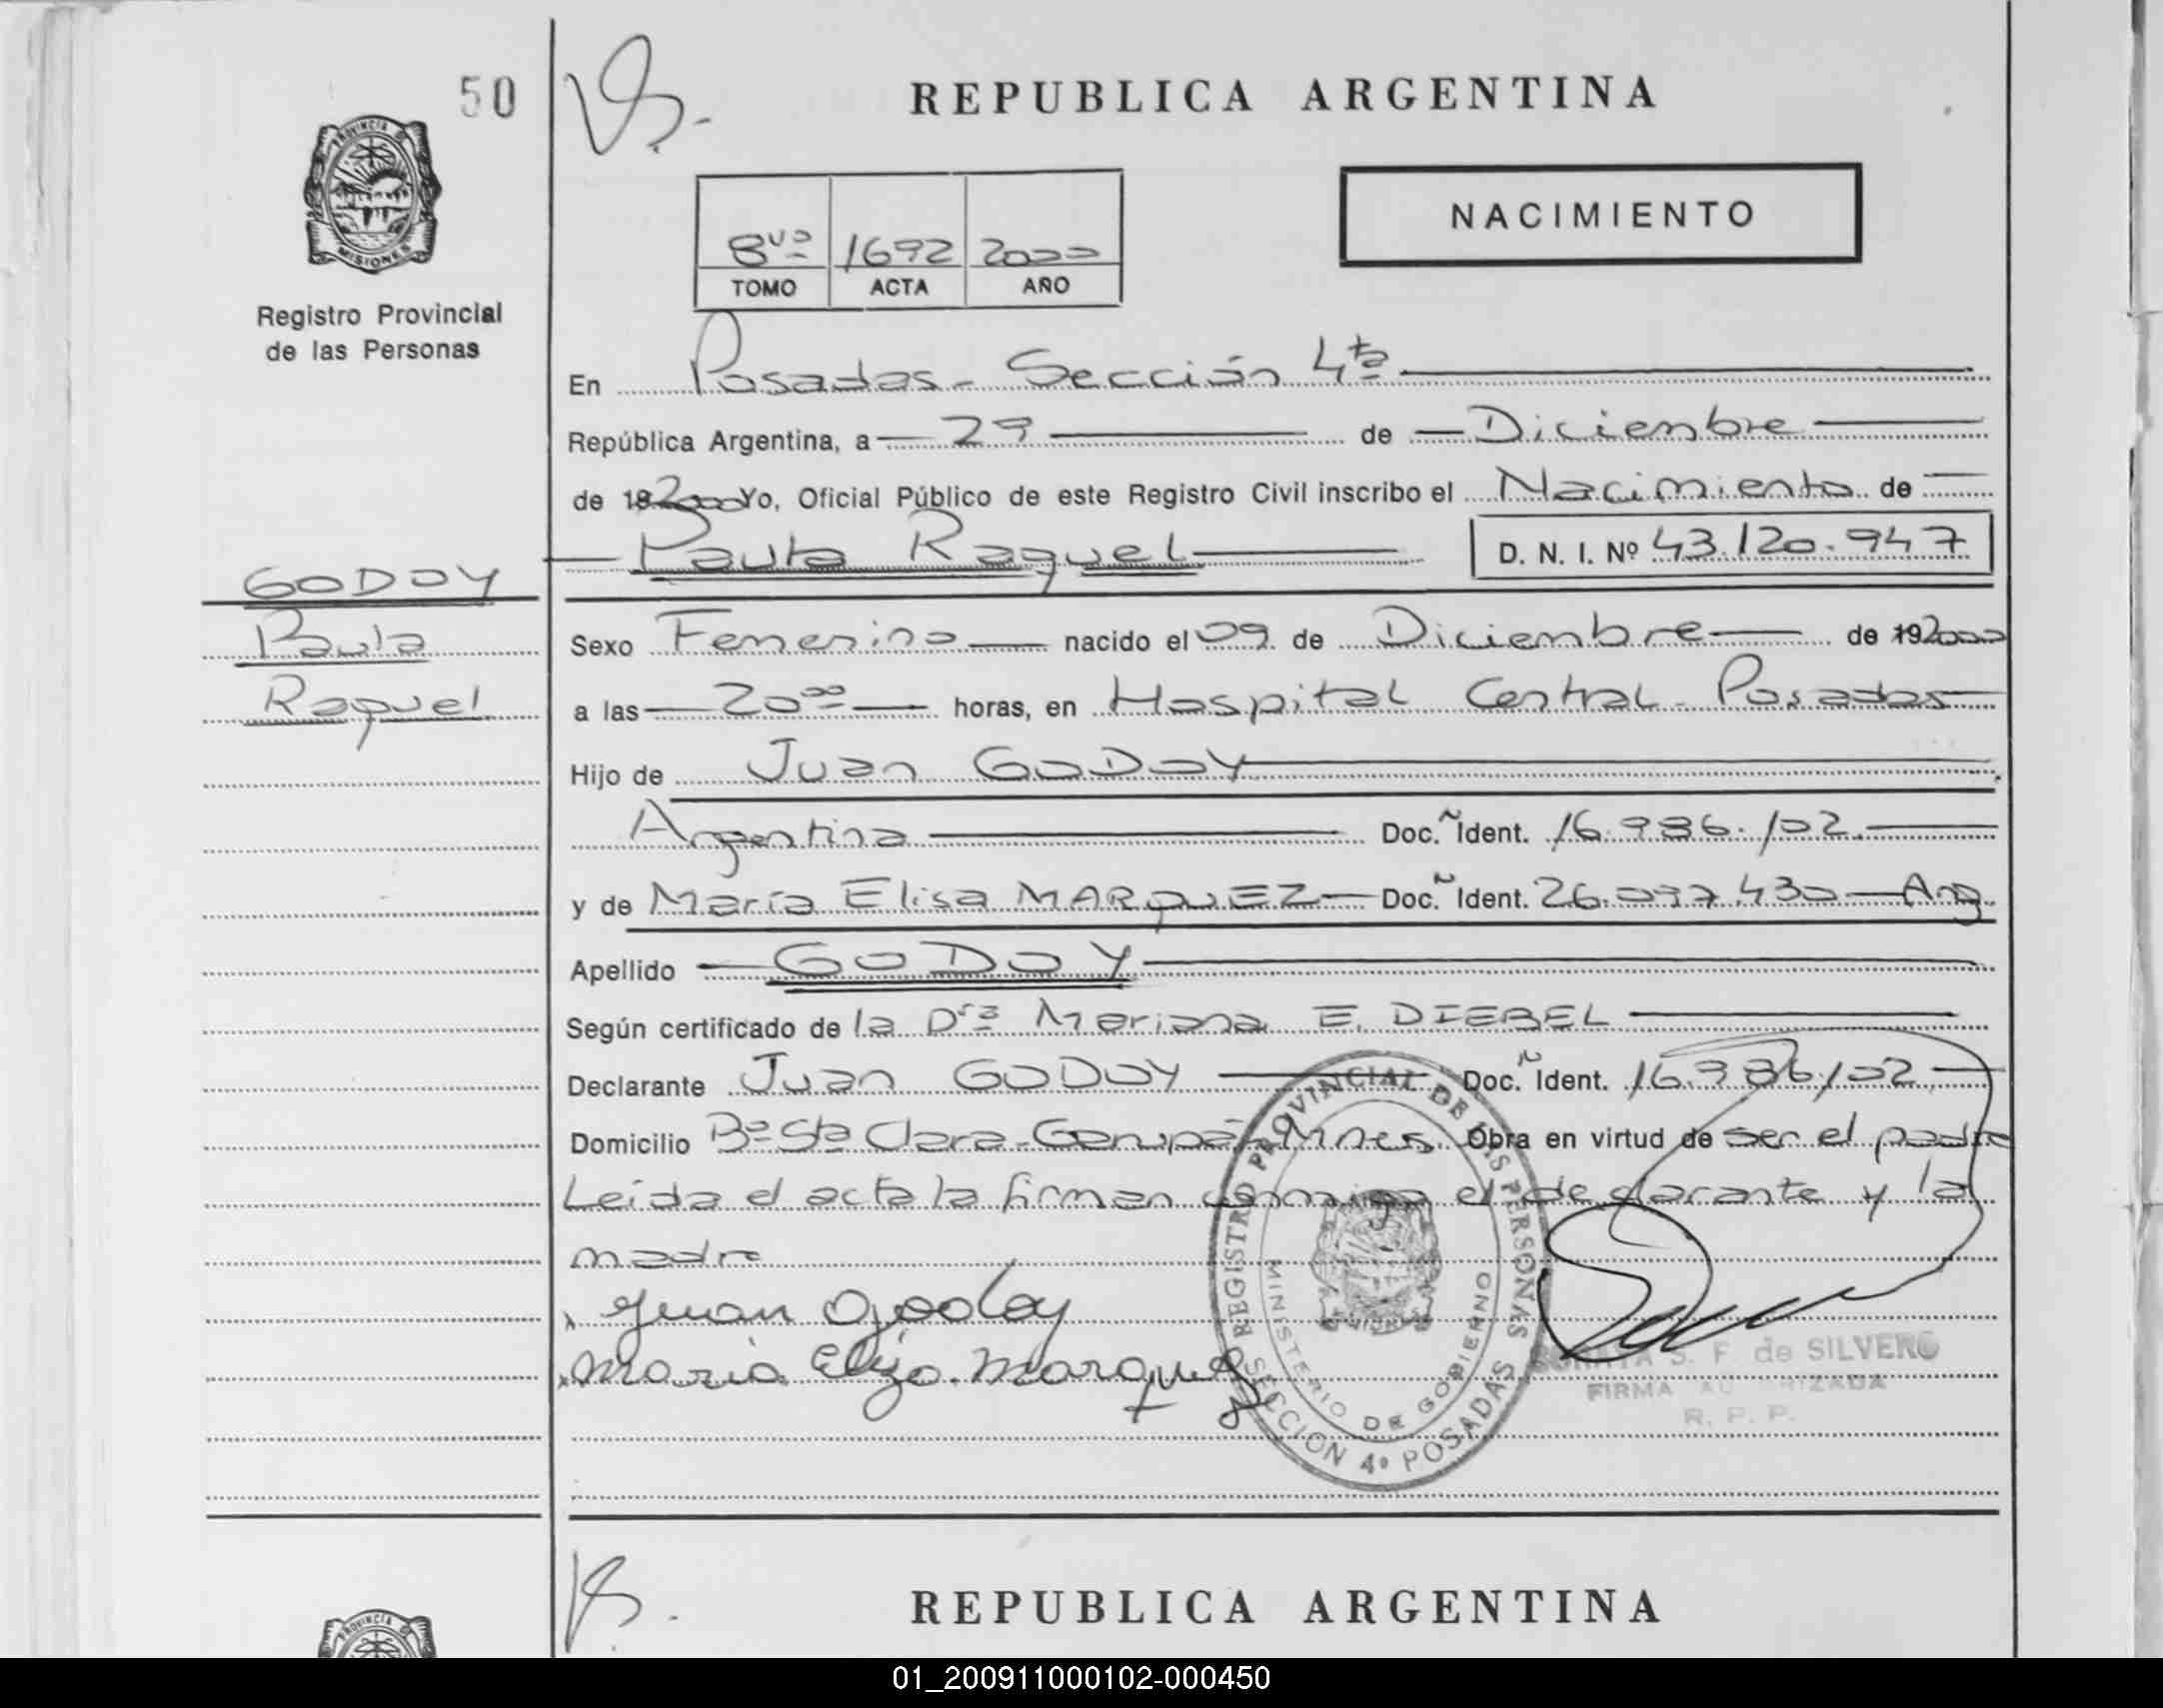 50
REPUBLICA ARGENTINA
PROVINCIA D
MISIONES
NACIMIENTO
8vo 1692 2000
TOMO ACTA AÑO
Registro Provincial
de las Personas
En Posadas - Sección 4ta
República Argentina, a 29 de Diciembre
de 192000 Yo, Oficial Público de este Registro Civil inscribo el Nacimiento de
Paula Raquel D. N. I. Nº 43.120.947
GODOY
Paula
Raquel
Sexo Femenino nacido el 09 de Diciembre de 192000
a las 20 00 horas, en Hospital Central - Posadas
Hijo de Juan GODOY
Argentina Doc. Ident. 16.986.102
y de María Elisa MARquEZ Doc. Ident. 26.097.430 Arg.
Apellido GODOY
Según certificado de la Dra Mariana E. DIEBEL
Declarante Juan GODOY Doc. Ident. 16.986.102
Domicilio Bº Sta Clara - Garupá Mnes. Obra en virtud de ser el padre
Leída el acta la firman conmigo el declarante y la
madre
Juan Godoy
Maria Eliza Marquez
REGISTRO PROVINCIAL DE LAS PERSONAS
MINISTERIO DE GOBIERNO
SECCION 4º POSADAS
S. F. de SILVERO
FIRMA AUTORIZADA
R. P. P.
REPUBLICA ARGENTINA
PROVINCIA
01_200911000102-000450